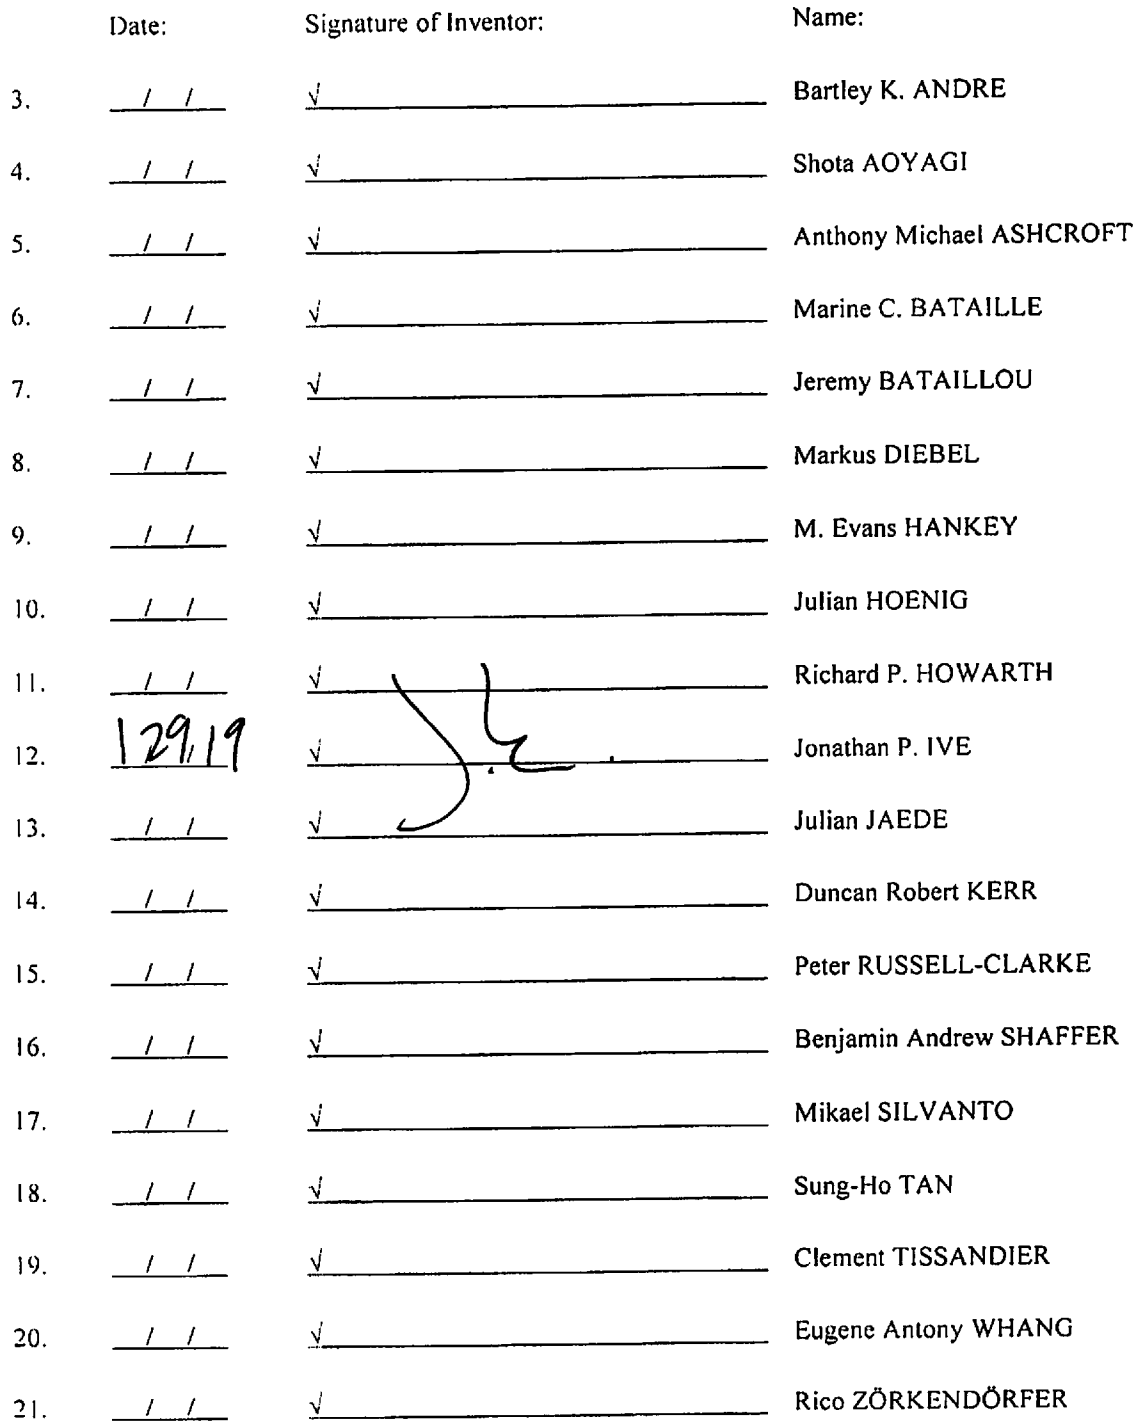 Date: Signature of Inventor: Name:
3. / / √ Bartley K. ANDRE
4. / / √ Shota AOYAGI
5. / / √ Anthony Michael ASHCROFT
6. / / √ Marine C. BATAILLE
7. / / √ Jeremy BATAILLOU
8. / / √ Markus DIEBEL
9. / / √ M. Evans HANKEY
10. / / √ Julian HOENIG
11. / / √ Richard P. HOWARTH
12. 1 29 19 √ Jonathan P. IVE
13. / / √ Julian JAEDE
14. / / √ Duncan Robert KERR
15. / / √ Peter RUSSELL-CLARKE
16. / / √ Benjamin Andrew SHAFFER
17. / / √ Mikael SILVANTO
18. / / √ Sung-Ho TAN
19. / / √ Clement TISSANDIER
20. / / √ Eugene Antony WHANG
21. / / √ Rico ZÖRKENDÖRFER